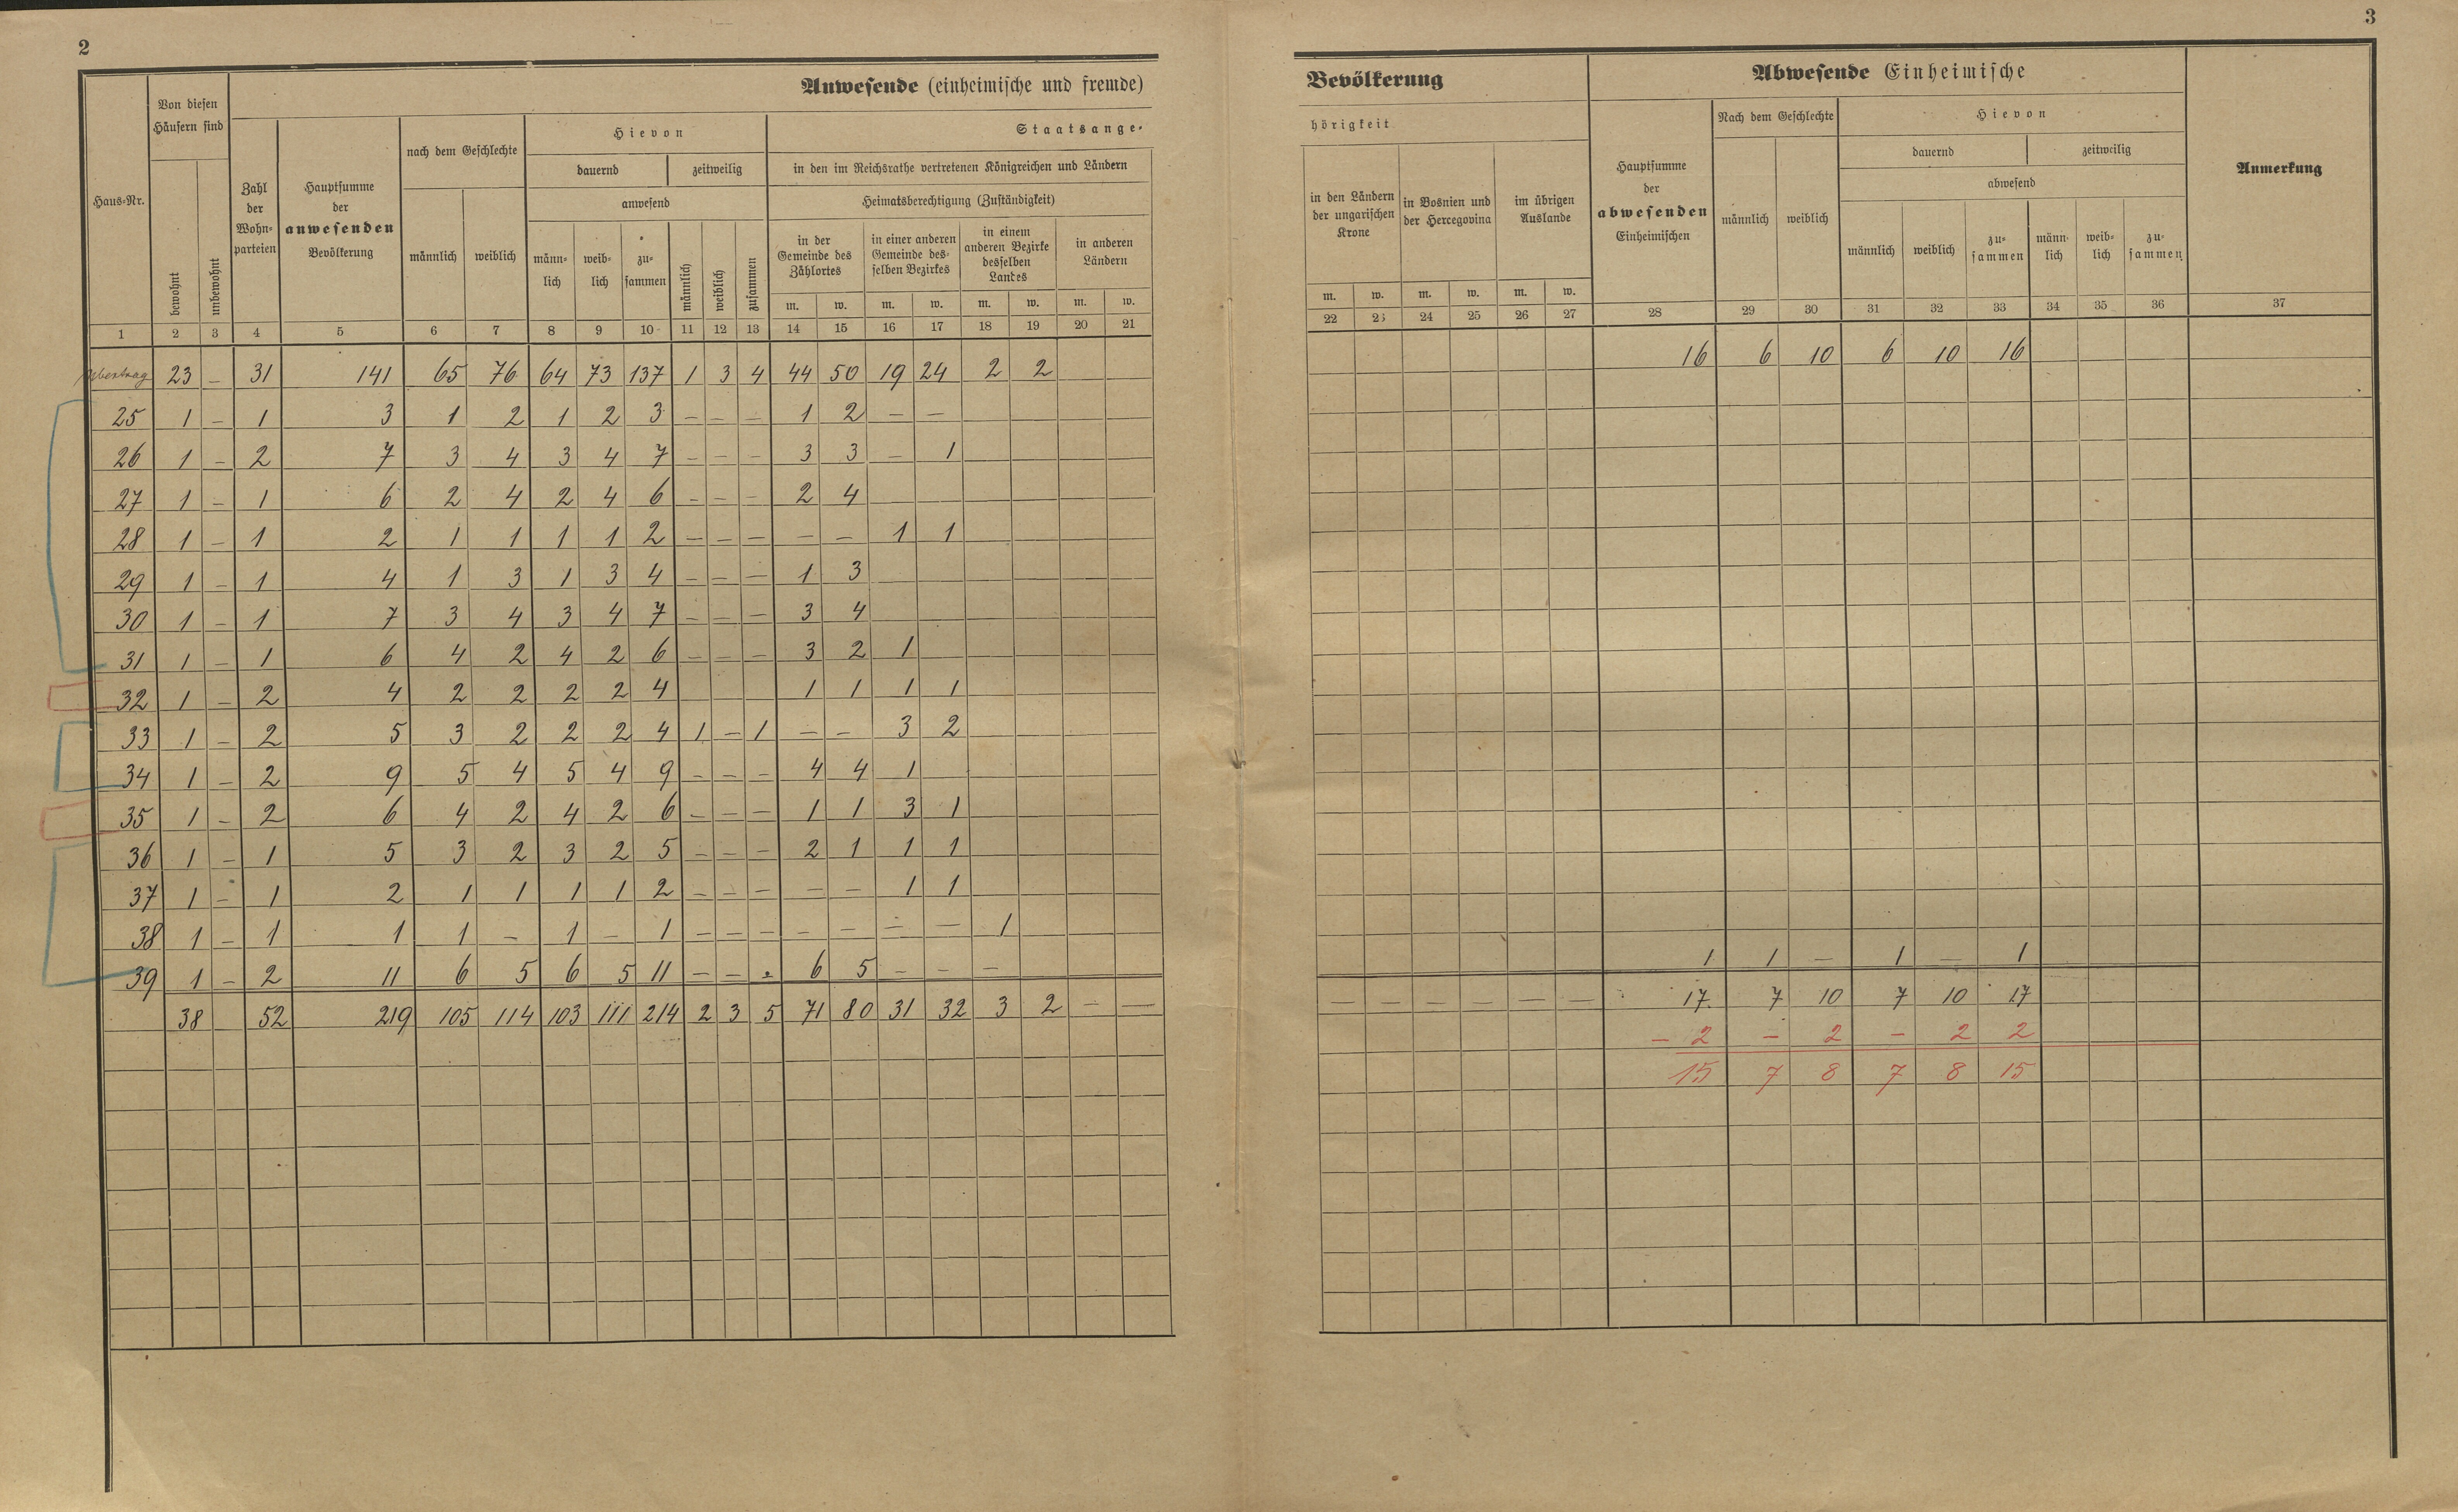 2
Anwesende (einheimische und fremde)
Von diesen Häusern sind
Haus-Nr.
bewohnt
unbewohnt
Zahl der Wohn-parteien
Hauptsumme der anwesenden Bevölkerung
nach dem Geschlechte
männlich
weiblich
Hievon
dauernd
zeitweilig
anwesend
männ-lich
weib-lich
zu-sammen
männlich
weiblich
zusammen
Staatsange-
in den im Reichsrathe vertretenen Königreichen und Ländern
Heimatsberechtigung (Zuständigkeit)
in der Gemeinde des Zählortes
in einer anderen Gemeinde des-selben Bezirkes
in einem anderen Bezirke desselben Landes
in anderen Ländern
m. w. m. w. m. w. m. w.
1 2 3 4 5 6 7 8 9 10 11 12 13 14 15 16 17 18 19 20 21
Übertrag 23 – 31 141 65 76 64 73 137 1 3 4 44 50 19 24 2 2
25 1 – 1 3 1 2 1 2 3 – – – 1 2 – –
26 1 – 2 7 3 4 3 4 7 – – – 3 3 – 1
27 1 – 1 6 2 4 2 4 6 – – – 2 4
28 1 – 1 2 1 1 1 1 2 – – – – – 1 1
29 1 – 1 4 1 3 1 3 4 – – – 1 3
30 1 – 1 7 3 4 3 4 7 – – – 3 4
31 1 – 1 6 4 2 4 2 6 – – – 3 2 1
32 1 – 2 4 2 2 2 2 4 1 1 1 1
33 1 – 2 5 3 2 2 2 4 1 – 1 – – 3 2
34 1 – 2 9 5 4 5 4 9 – – – 4 4 1
35 1 – 2 6 4 2 4 2 6 – – – 1 1 3 1
36 1 – 1 5 3 2 3 2 5 – – – 2 1 1 1
37 1 – 1 2 1 1 1 1 2 – – – – – 1 1
38 1 – 1 1 1 – 1 – 1 – – – – – – – 1
39 1 – 2 11 6 5 6 5 11 – – . 6 5 – – –
38 52 219 105 114 103 111 214 2 3 5 71 80 31 32 3 2 – –
3
Bevölkerung
hörigkeit
in den Ländern der ungarischen Krone
in Bosnien und der Hercegovina
im übrigen Auslande
m. w. m. w. m. w.
Abwesende Einheimische
Hauptsumme der abwesenden Einheimischen
Nach dem Geschlechte
männlich
weiblich
Hievon
dauernd
zeitweilig
abwesend
männlich
weiblich
zu-sammen
männ-lich
weib-lich
zu-sammen
Anmerkung
22 23 24 25 26 27 28 29 30 31 32 33 34 35 36 37
16 6 10 6 10 16
1 1 – 1 – 1
– – – – – – 17. 7 10 7 10 17
– 2 – 2 – 2 2
15 7 8 7 8 15